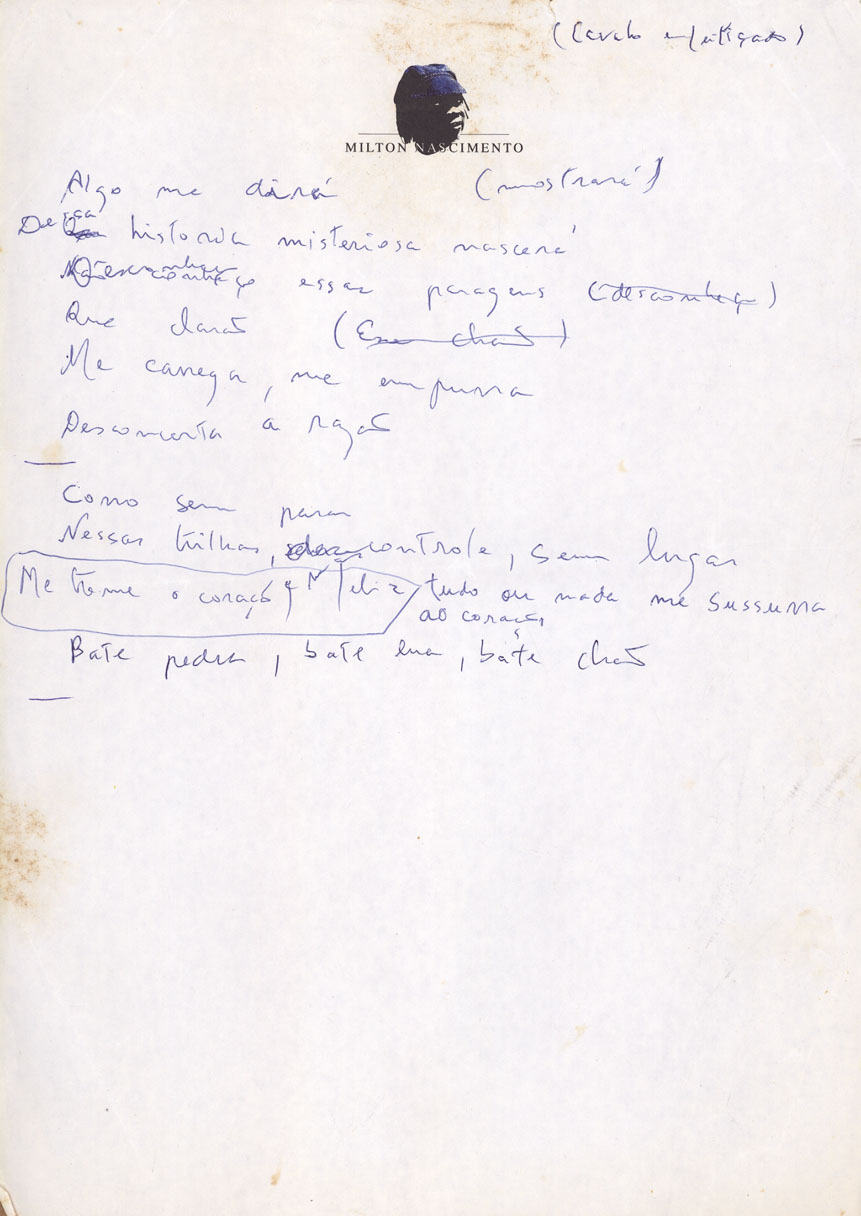 (Cavalo enfeitiçado)
MILTON NASCIMENTO
Algo me dirá (mostrará)
Dessa historia misteriosa nascerá
Desconheço essas paragens (desconheço)
Que clarão (Esse chão)
Me carrega, me empurra
Desconcerta a razão
Corro sem parar
Nessas trilhas, descontrole, sem lugar
Me treme o coração feliz tudo ou nada me sussurra
ao coração
Bate pedra, bate lua, bate chão